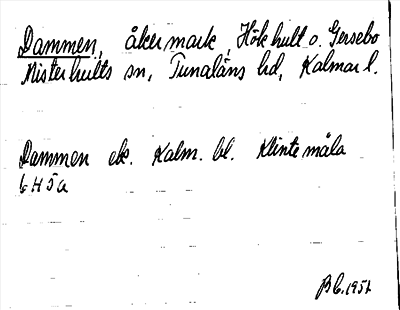 Dammen, åkermark, Hökhult o. Gersebo
Misterhults sn, Tunaläns hd, Kalmar l.
Dammen ek. Kalm. bl. Klintemåla
6 H 5 a
1951